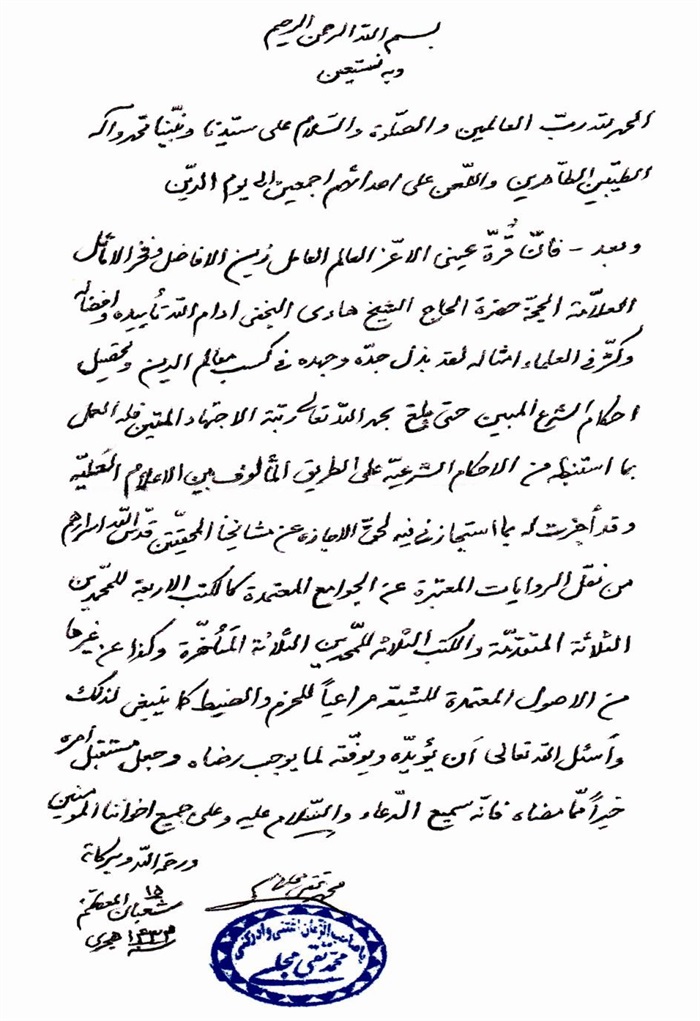 بسم الله الرحمن الرحیم
وبه نستعین
الحمد لله ربّ العالمین والصّلوة والسّلام علی سیّدنا ونبیّنا محمّد وآله
الطیّبین الطّاهرین واللّعن علی اعدائهم اجمعین الی یوم الدّین
وبعد – فانّ قُرّة عینی الاعزّ العالم العامل زین الافاضل وفخر الاماثل
العلّامة الحجّة حضرة الحاج الشیخ هادی النجفی ادام الله تأییده وافضاله
وکثّر فی العلماء امثاله لقد بذل جدّه وجهده فی کسب معالم الدین وتحصیل
احکام الشرع المبین حتی بلغ بحمد الله تعالی رتبة الاجتهاد المتین فله العمل
بما استنبطه من الاحکام الشّرعیّه علی الطریق المألوف بین الاعلام العَلیّه
وقد أجزت له بما استجازنی فیه لحقّ الاجازه عن مشائخنا المحقّقین قدّس الله اسرارهم
من نقل الروایات المعتبرة عن الجوامع المعتمدة کالکتب الاربعة للمحمّدین
الثلاثة المتقدّمة والکتب الثلاثه للمحّمدین الثلاثة المتأخّرة وکذا عن غیرها
من الاصول المعتمدة للشیعّه مراعیاً للحزم والضبط کما ینبغی لذلک
وأسئل الله تعالی أن یؤیدّه ویوفّقه لما یوجب رضاه وجعل مستقبل أمره
خیراً ممّا مضاه فانّه سمیع الدّعاء والسّلام علیه وعلی جمیع اخواننا المؤمنین
ورحمة الله وبرکاته
محمد تقی مجلسی
۱۵ شعبان المعظّم
سنه ۱۴۳۳ هجری
یا صاحب الزمان اغثنی وادرکنی
محمد تقی مجلسی